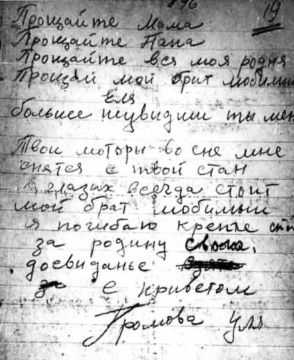 19
Прощайте Мама
Прощайте Папа
Прощайте вся моя родня
Прощай мой брат любимый
Еля
больше неувидиш ты мен
Твои моторы во сне мне
снятся е твой стан
в глазах всегда стоит
мой брат любимый
я погибаю крепче
за родину свою.
досвиданье
с приветом
Громова Уля